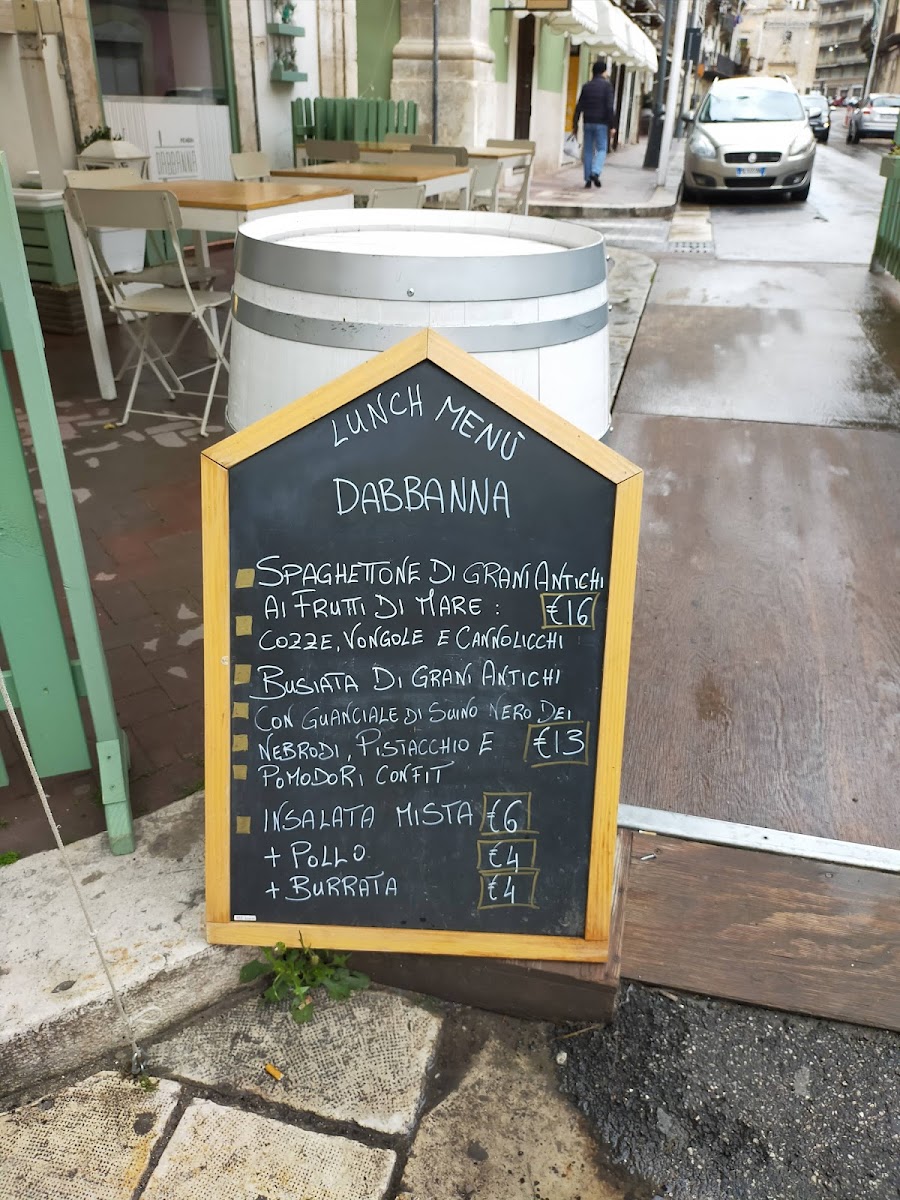 DABBANNA
LUNCH MENÙ
DABBANNA
SPAGHETTONE DI GRANI ANTICHI
AI FRUTTI DI MARE : €16
COZZE, VONGOLE E CANNOLICCHI
BUSIATA DI GRANI ANTICHI
CON GUANCIALE DI SUINO NERO DEI
NEBRODI, PISTACCHIO E €13
POMODORI CONFIT
INSALATA MISTA €6
+ POLLO €4
+ BURRATA €4